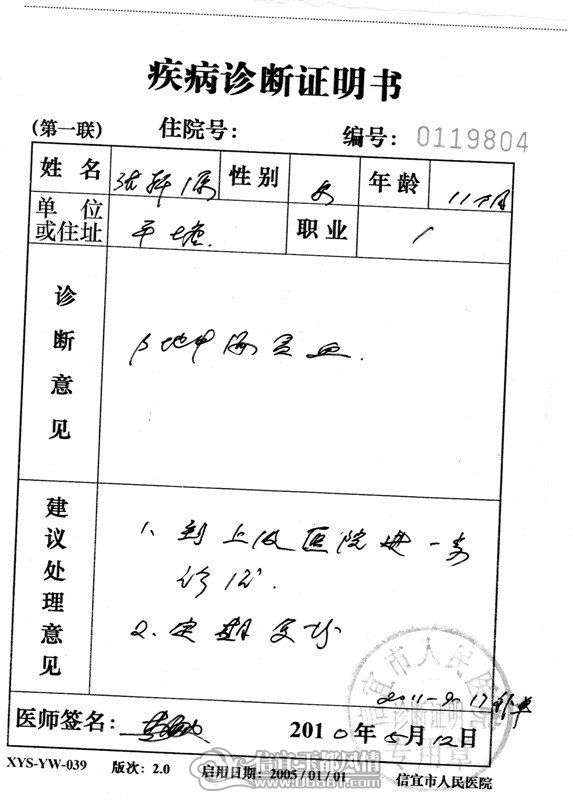 疾病诊断证明书
(第一联) 住院号: 编号: 0119804
姓名 张 性别 女 年龄 11个月
单位或住址 平塘. 职业 /
诊断意见
β地中海贫血.
建议处理意见
1、到上级医院进一步
诊治.
2、定期复诊
信宜市人民医院
诊断证明
专用章
2011-9.17补单
医师签名: 2010年5月12日
XYS-YW-039 版次: 2.0 启用日期: 2005/01/01 信宜市人民医院
信宜玉都风情